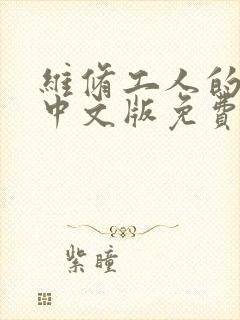 維脩工人的
中文版免費
紫瞳